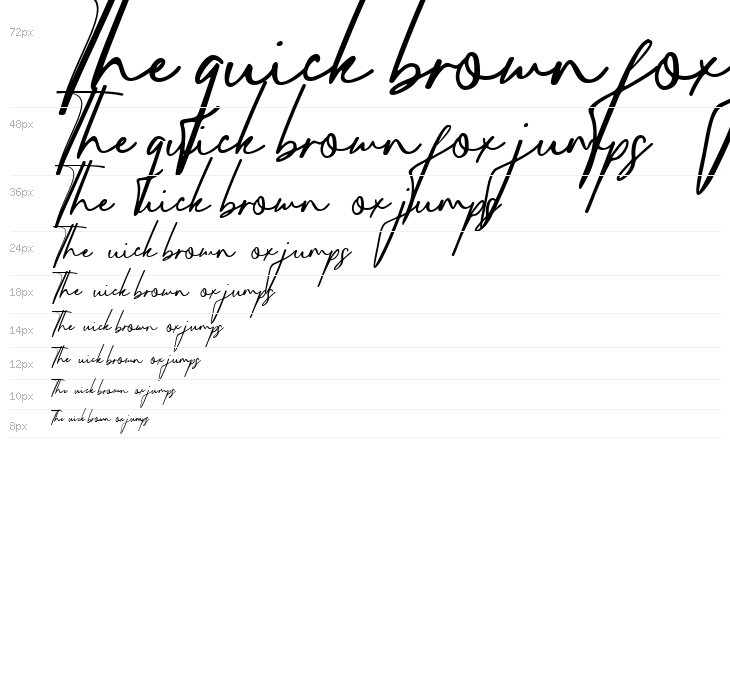 72px The quick brown fox
48px The quick brown fox jumps
36px The quick brown fox jumps
24px The quick brown fox jumps
18px The quick brown fox jumps
14px The quick brown fox jumps
12px The quick brown fox jumps
10px The quick brown fox jumps
8px The quick brown fox jumps